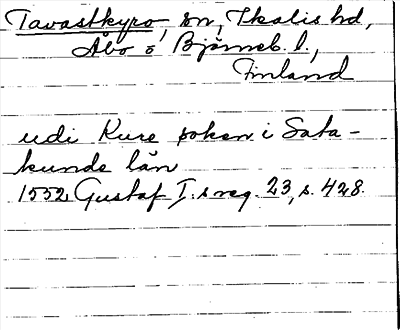 Tavastkyro, sn, Ikalis hd,
Åbo o Björneb. l.,
Finland
udi Kure soken i Sata-
kunde län
1552, Gustaf I:s reg. 23, s. 428.